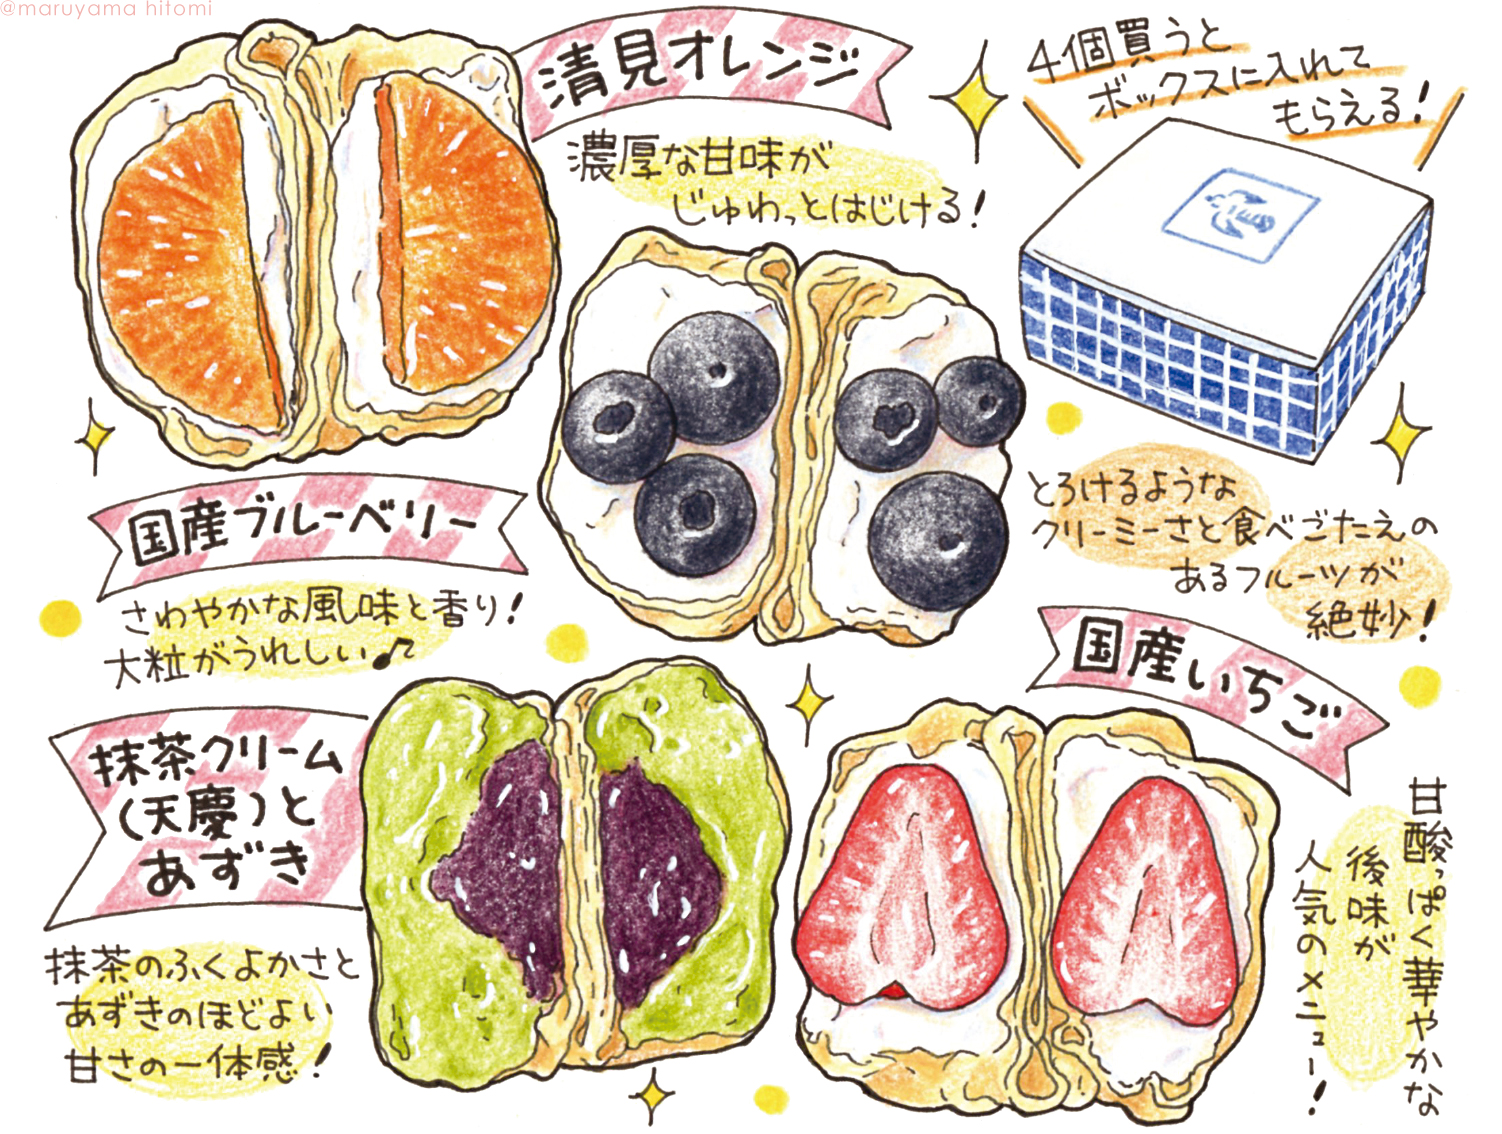 @maruyama hitomi
清見オレンジ
濃厚な甘味が
じゅわっとはじける!
4個買うと
ボックスに入れて
もらえる!
国産ブルーベリー
さわやかな風味と香り!
大粒がうれしい♪
とろけるような
クリーミーさと食べごたえの
あるフルーツが
絶妙!
抹茶クリーム
(天慶)と
あずき
抹茶のふくよかさと
あずきのほどよい
甘さの一体感!
国産いちご
甘酸っぱく華やかな
後味が
人気のメニュー!